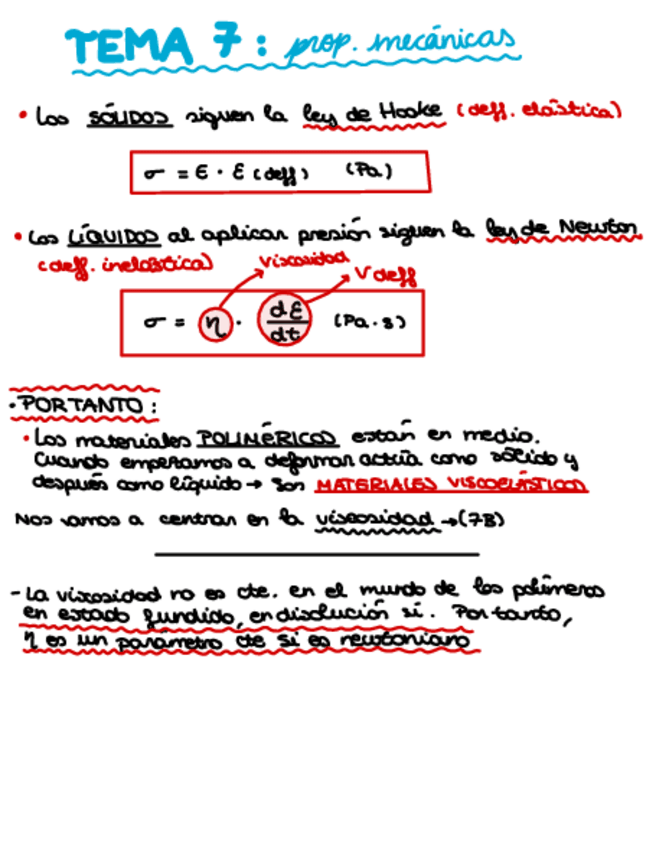 TEMA 7: prop. mecánicas
• Los SÓLIDOS siguen la ley de Hooke (deff. elástica)
σ = E · ε (deff) (Pa)
• Los LÍQUIDOS al aplicar presión siguen la ley de Newton
(deff. inelástica) viscosidad
V deff
σ = η · dε/dt (Pa·s)
· POR TANTO:
• Los materiales POLIMÉRICOS están en medio.
Cuando empezamos a deformar actúa como sólido y
después como líquido → Son MATERIALES VISCOELÁSTICOS
Nos vamos a centrar en la viscosidad → (7B)
- La viscosidad no es cte. en el mundo de los polímeros
en estado fundido, en disolución sí. Por tanto,
η es un parámetro cte si es newtoniano